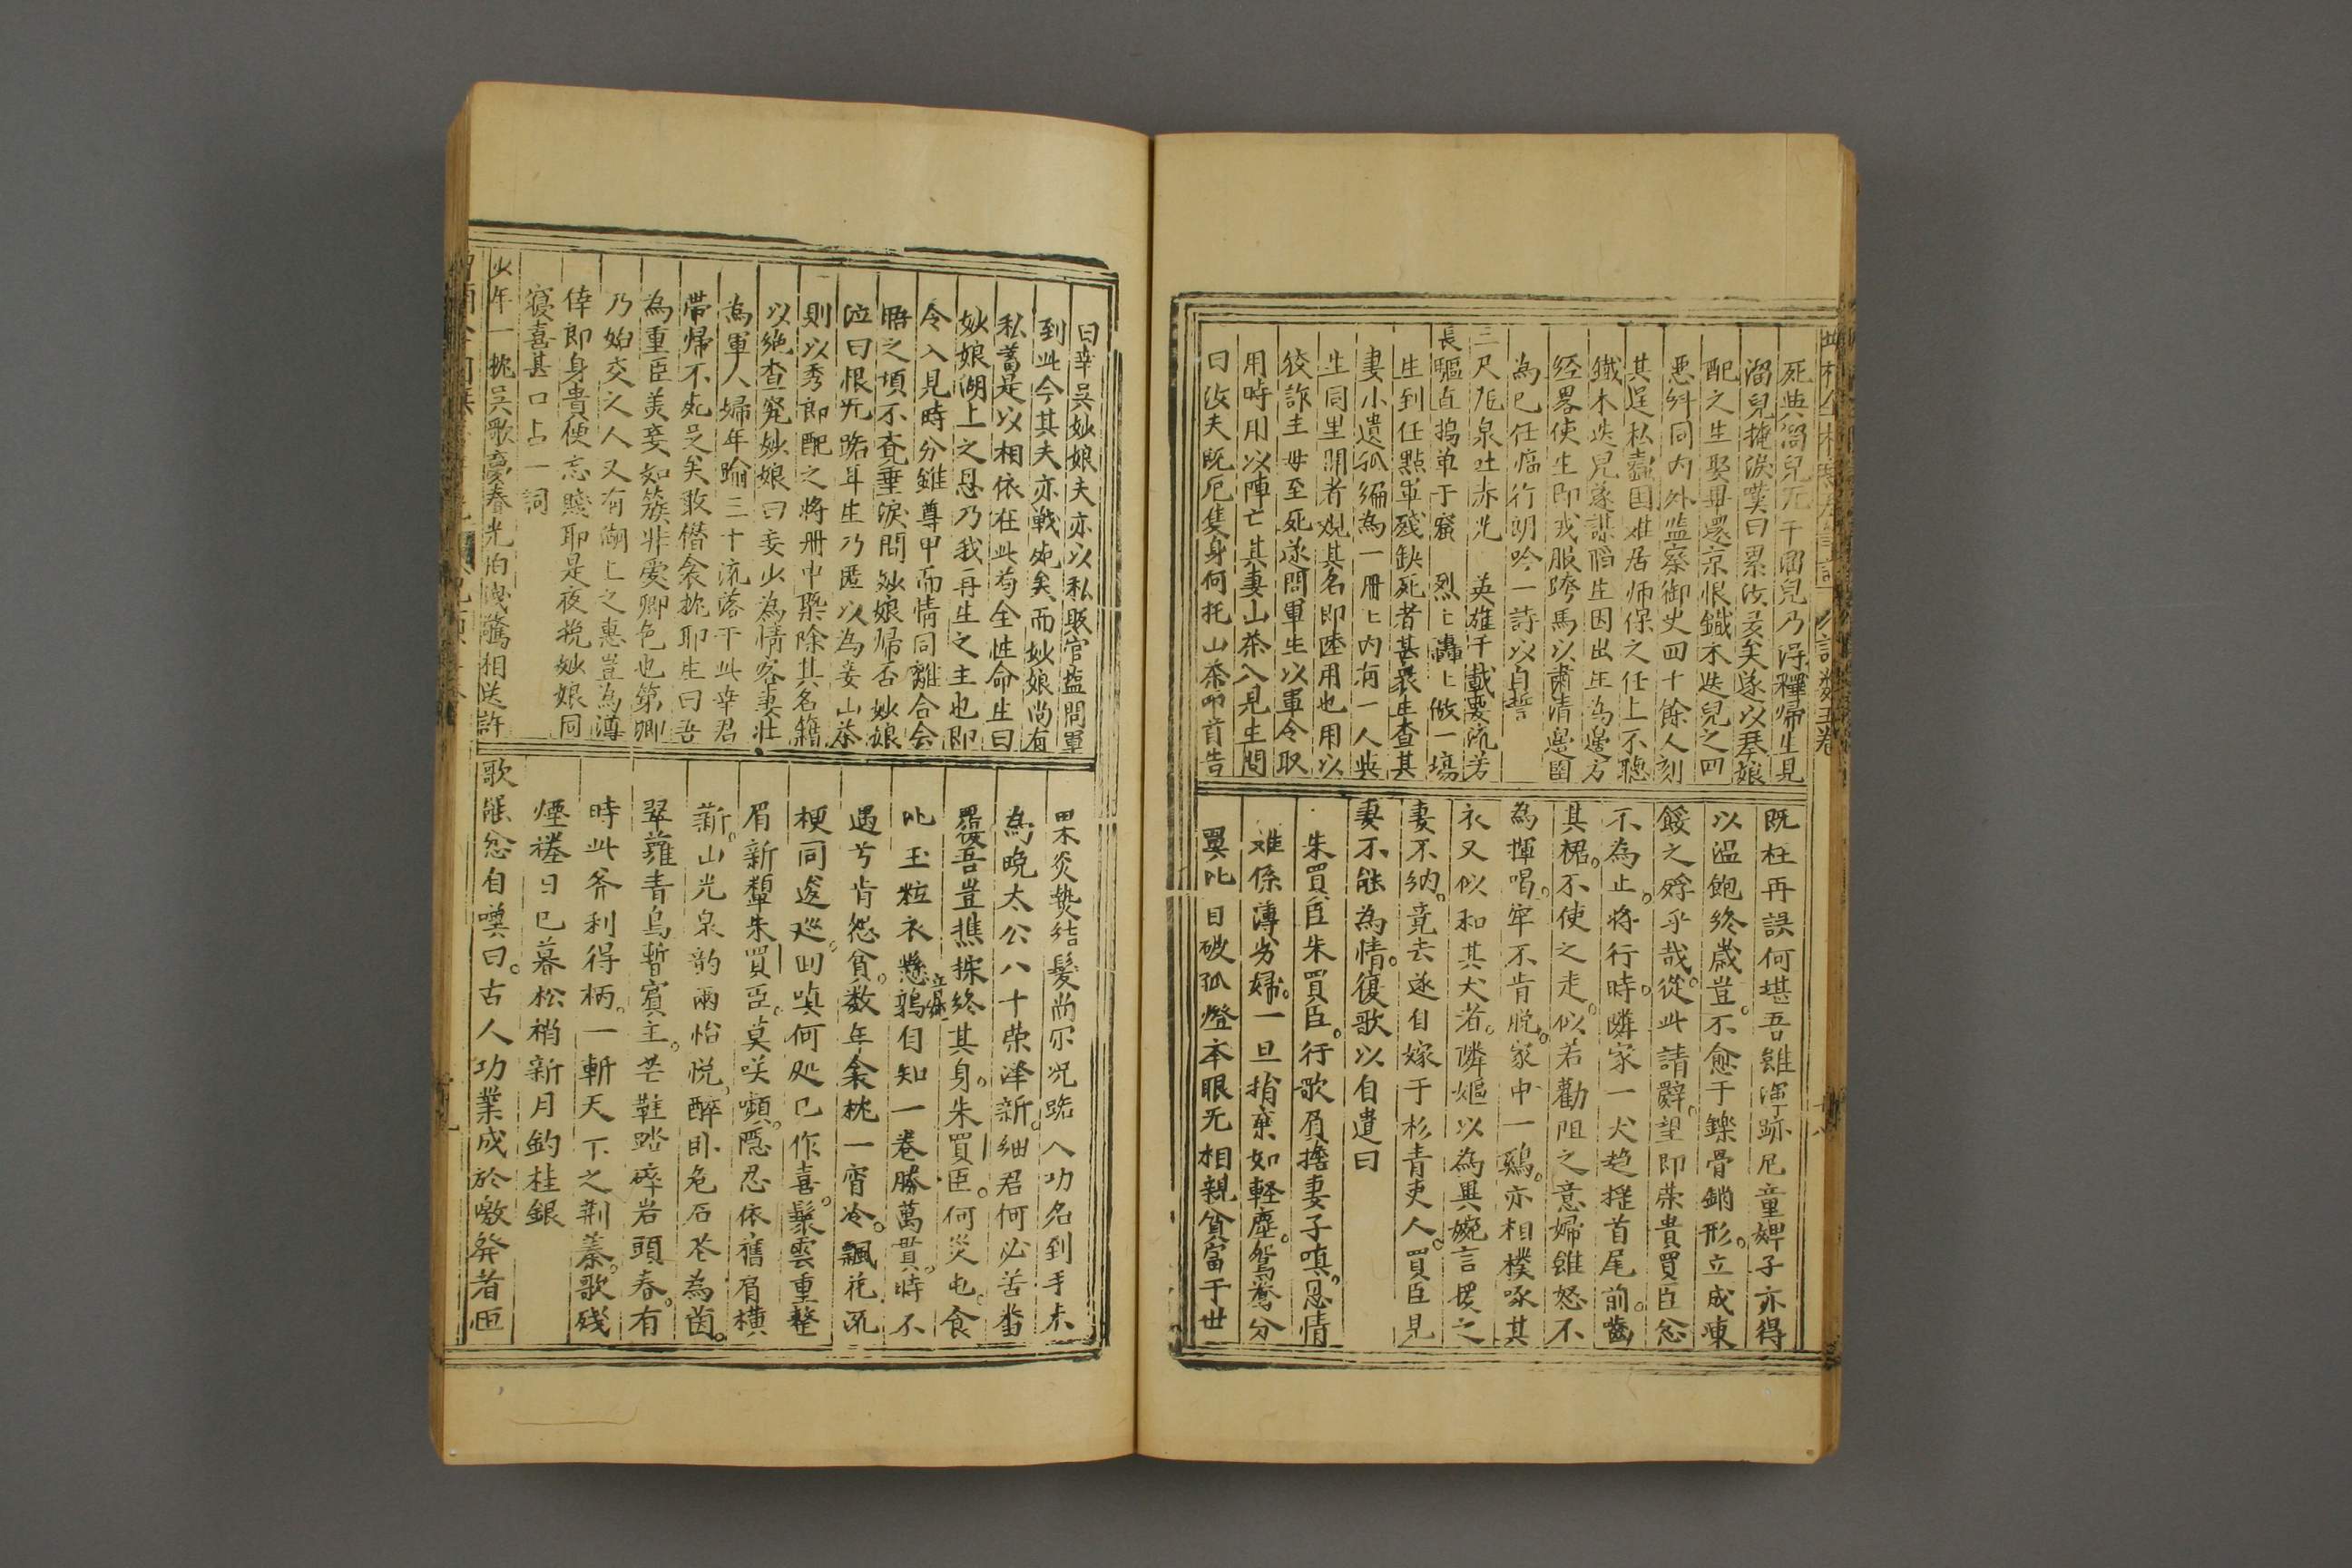 死與溜兒死干溜兒乃得釋歸生見
溜兒掩淚嘆曰累汝多矣遂以琴娘
配之生娶畢還京恨鐵木迭兒之四
惡糾同內外监察御史四十餘人刻
其逞私蠹国难居师保之任上不聴
鐵木迭兒遂謀陷生因出生為邊方
经畧使生即戎服跨馬以肅清邊圉
為己任馬行朗吟一詩以自誓
三尺龍泉吐赤光 英雄千載要流芳
長驅直搗单于窟 烈〻轟〻做一場
生到任點軍殘缺死者甚衆生查其
妻小遺孤編為一冊〻内有一人與
生同里閈者观其名即陸用也用以
狡詐主毋至死遂問軍生以軍令取
用時用以陣亡其妻山茶入見生問
曰汝夫既厄隻身何托山茶叩首告
既枉再誤何堪吾雖渾跡尼童婢子亦得
以温飽終歲。豈不愈于鑠骨銷形。立成凍
餒之殍乎哉。從此請辭。望即荣貴買臣忿
不為止。將行時。隣家一犬趋摧首尾前。齒
其裙。不使之走。似若勸阻之意婦雖怒不
為揮喝。牢不肯脱。家中一鷄。亦相樸啄其
衣又似和其犬者。隣嫗以為異婉言援之
妻不纳。竟去遂自嫁于杉青吏人。買臣見
妻不能為情。復歌以自遣曰
朱買臣朱買臣。行歌負擔妻子嗔。恩情
难係薄劣婦。一旦捐棄如軽塵。鴛鴦分
翼叱目破孤燈本眼无相親貧富于世
曰幸吴妙娘夫亦以私販官塩問軍
到此今其夫亦戰死矣而妙娘尚有
私蓄是以相依在此苟全性命生曰
妙娘湖上之恩乃我再生之主也即
令入見時分雖尊卑而情同離合会
晤之頃不竟垂淚問妙娘帰否妙娘
泣曰恨无路耳生乃匿以為妾山茶
則以秀郎配之将冊中槩除其名籍
以绝查究妙娘曰妾少為情客妻壮
為軍人婦年踰三十流落于此幸君
帶帰不死足矣敢僭衾枕耶生曰吾
為重臣美妾如簇非爱卿色也第卿
乃始交之人又有湖上之惠豈為溥
倖即身貴便忘賤耶是夜挽妙娘同
寝喜甚口占一詞
少年一挑吴歌夢春光泊洩驚相送許
累炎熱結髮尚尔况路人功名到手未
為晚太公八十荣澤新。细君何必苦畨
覆吾豈樵採終其身。朱買臣。何災屯。食
叱玉粒衣懸鶉自知一卷勝萬貫。時不
遇兮肯怨貧。数年衾枕一宵冷。飄花流
梗同逡巡。回嗔何処已作喜。鬓雲重整
眉新颦朱買臣。莫咲嚬。隱忍依舊肩横
薪。山光泉韵兩怡悦。醉卧危石苍為茵。
翠蘿青鸟暫賓主。芒鞋踏碎岩頭春。有
時此斧利得柄。一斬天下之荆蓁。歌殘
煙褪日已暮松梢新月鈎桂銀
歌罷忿自嘆曰。古人功業成於激發者叵